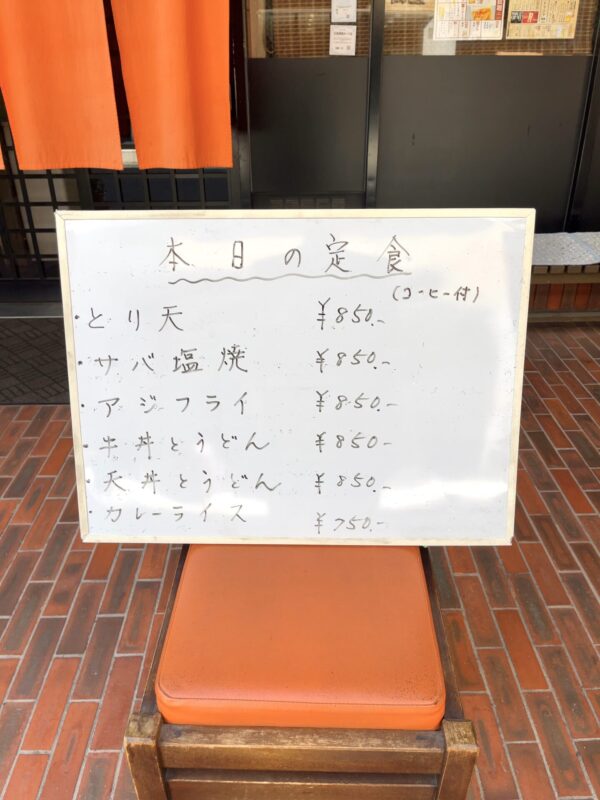 本日の定食
(コーヒー付)
・とり天 ¥850.-
・サバ塩焼 ¥850.-
・アジフライ ¥850.-
・牛丼とうどん ¥850.-
・天丼とうどん ¥850.-
・カレーライス ¥750.-